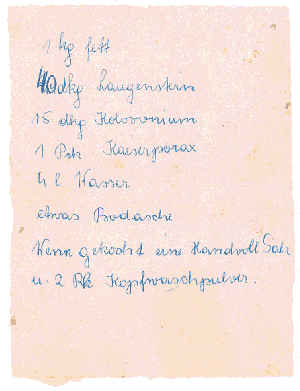 1 kg fett
40 dkg Laugenstein
15 dkg Kolovonium
1 Pck Kaiserporax
4 l Wasser
etwas Podasche
Wenn gekocht eine Handvoll Salz
u. 2 Pck Kopfwaschpulver.